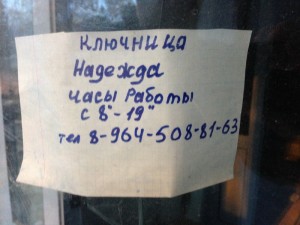 Ключница
Надежда
часы работы
с 8" - 19"
тел 8-964-508-81-63